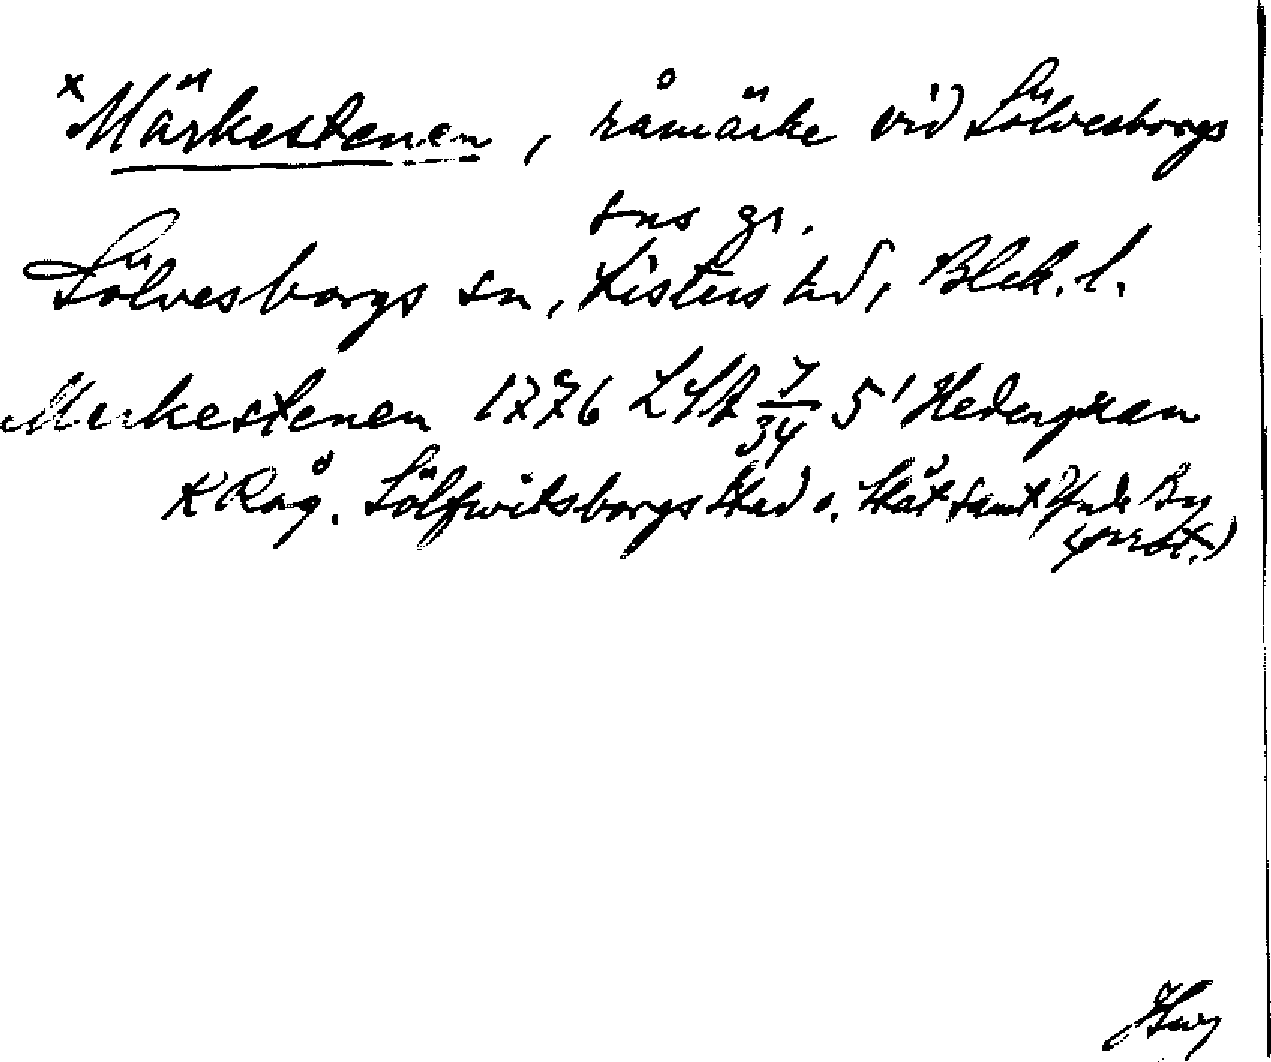 x Märkestenen, råmärke vid Sölvesborgs
sns gr.
Sölvesborgs sn, Listers hd, Blek. l.
Merkestenen 1776 LSA 7/34 5' Hedengran
K Råg. Sölfwitsborgs Stad o. Slåt samt Ynde By
(prot.)